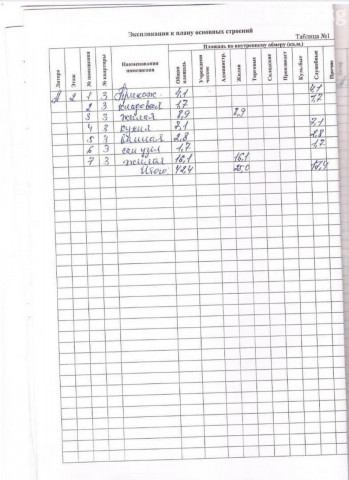 Экспликация к плану основных строений
Таблица №1
Литера
Этаж
№ помещения
№ квартиры
Наименования помещения
Площадь по внутреннему обмеру (кв.м.)
Общая площадь
Административ.
Жилая
Торговая
Складская
Производст
Культ-быт
Служебные
Прочие
А 2 1 3 Прихож. 4,1 4,1
2 3 кладовая 1,7 1,7
3 3 жилая 8,9 8,9
4 3 кухня 7,1 7,1
5 3 ванная 2,8 2,8
6 3 сан узел 1,7 1,7
7 3 жилая 16,1 16,1
Итого 42,4 25,0 17,4